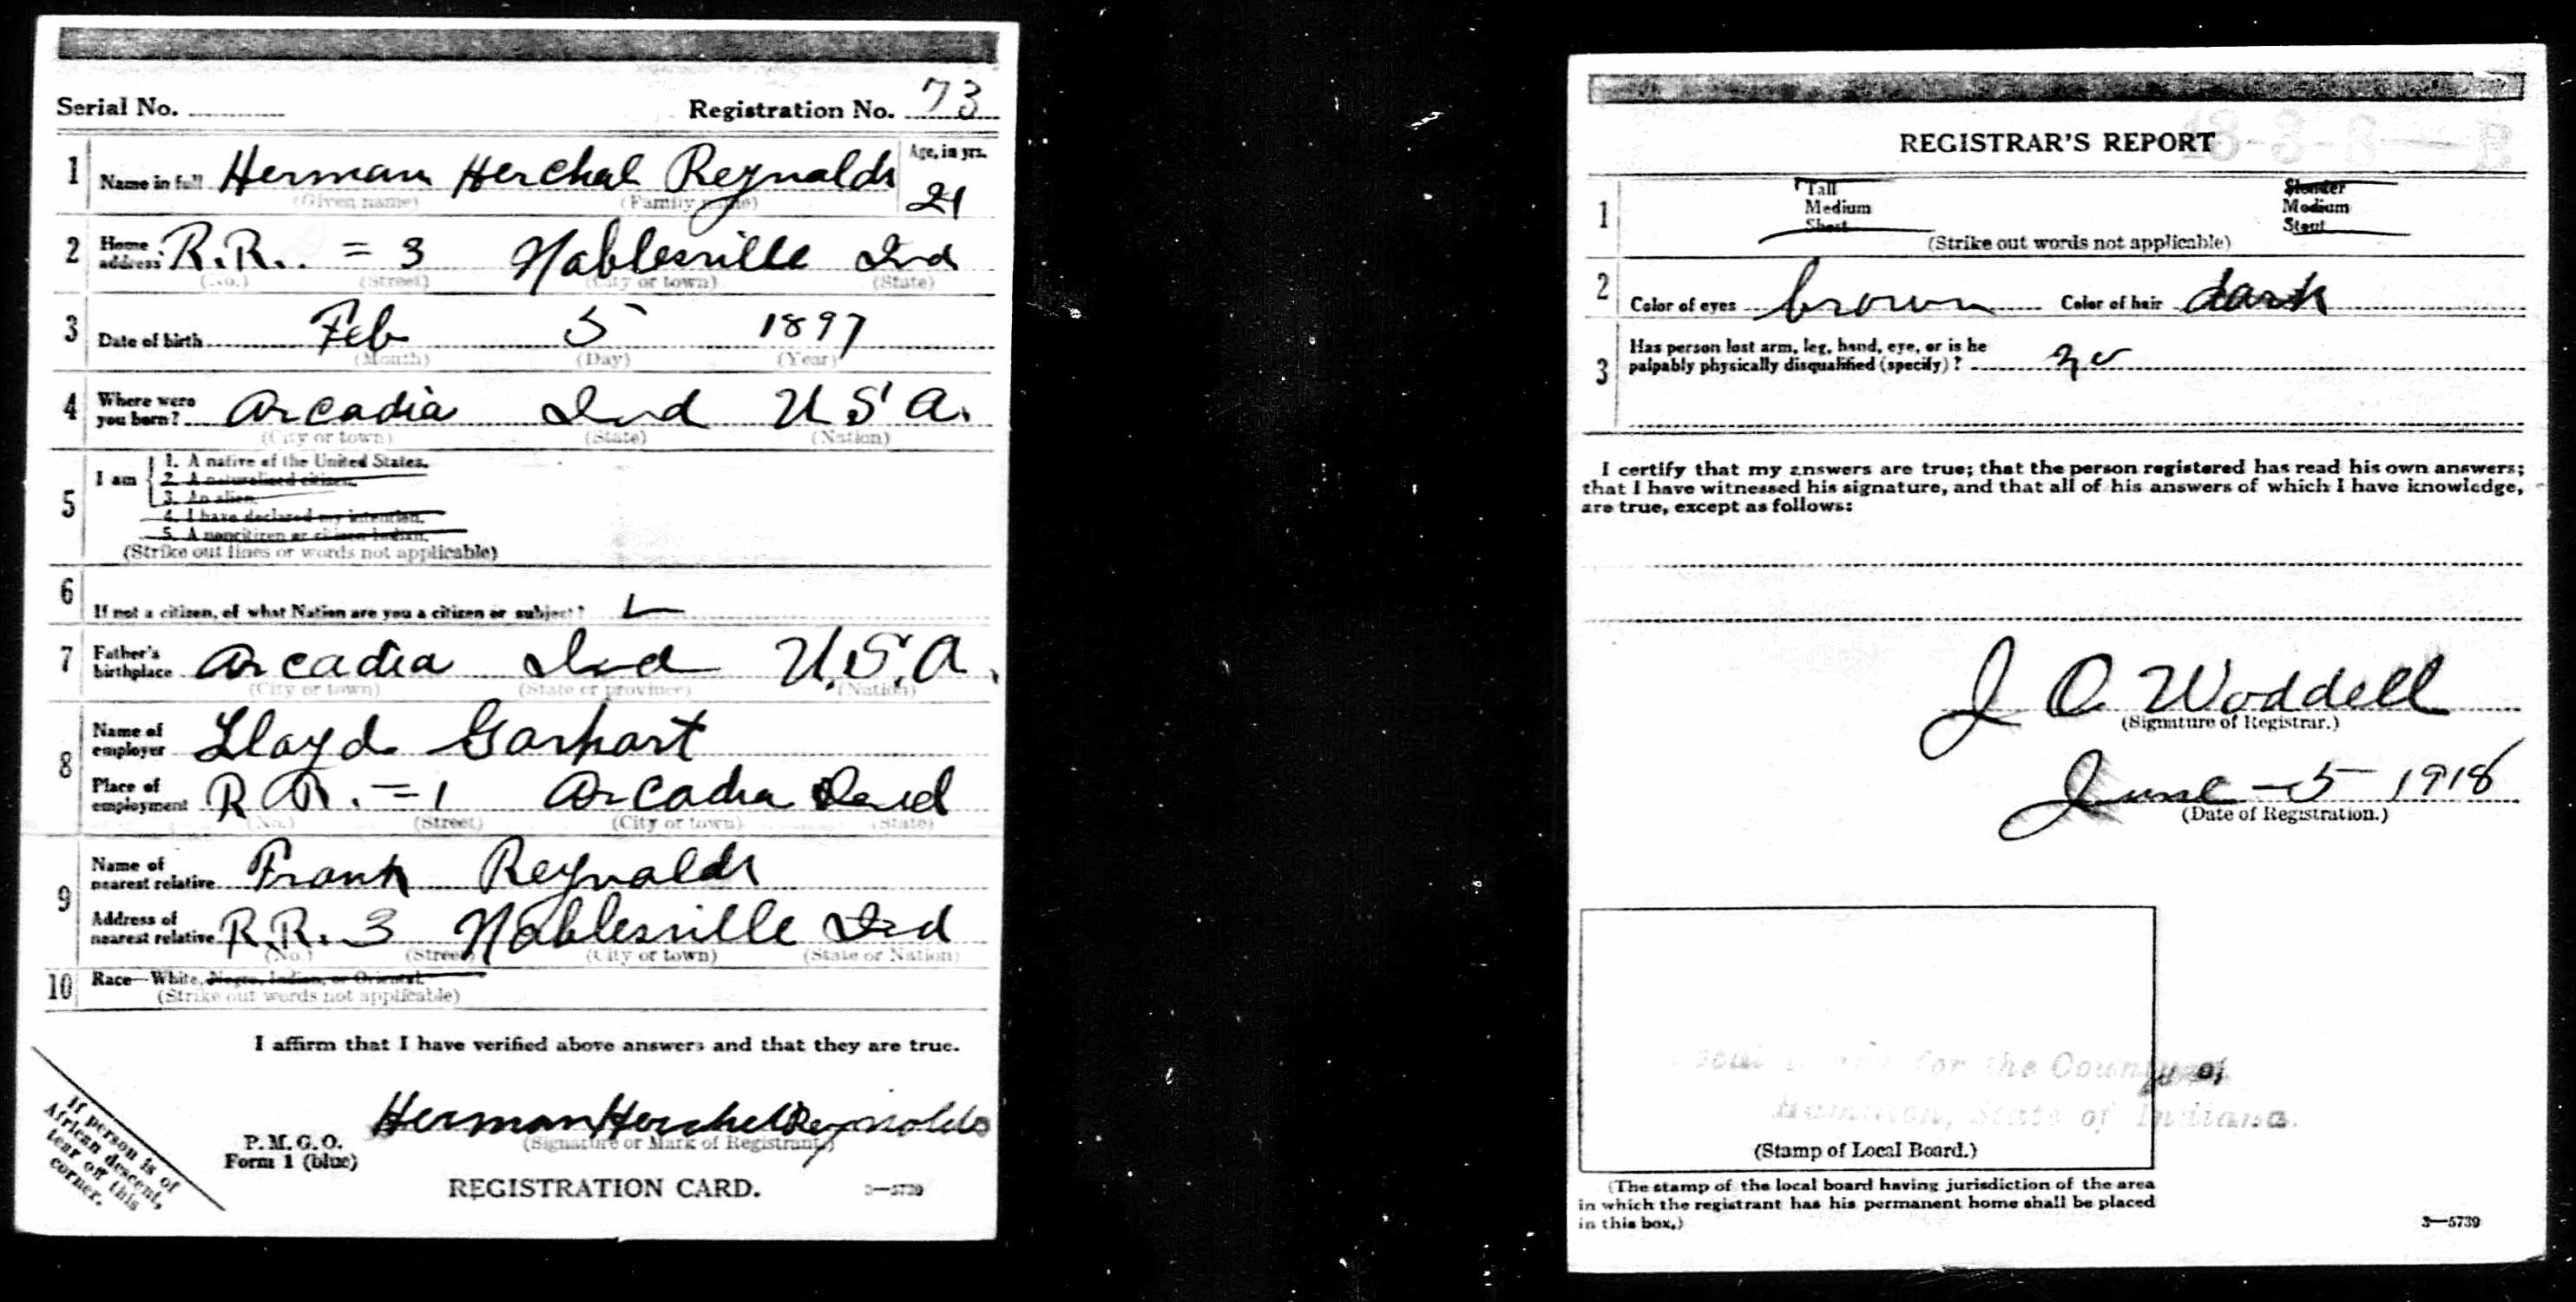 Serial No. Registration No. 73
1 Name in full Herman Herchal Reynalds Age, in yrs.
(Given name) (Family name) 21
2 Home address R.R. = 3 Noblesville Ind
(No.) (Street) (City or town) (State)
3 Date of birth Feb 5 1897
(Month) (Day) (Year)
4 Where were you born? Arcadia Ind U S A.
(City or town) (State) (Nation)
5 I am
1. A native of the United States.
2. A naturalized citizen.
3. An alien.
4. I have declared my intention.
5. A noncitizen or citizen Indian.
(Strike out lines or words not applicable)
6 If not a citizen, of what Nation are you a citizen or subject?
7 Father's birthplace Arcadia Ind U.S.A.
(City or town) (State or province) (Nation)
8 Name of employer Lloyd Garhart
Place of employment R R. = 1 Arcadia Ind
(No.) (Street) (City or town) (State)
9 Name of nearest relative Frank Reynalds
Address of nearest relative R.R. 3 Noblesville Ind
(No.) (Street) (City or town) (State or Nation)
10 Race—White, Negro, Indian, or Oriental.
(Strike out words not applicable)
I affirm that I have verified above answers and that they are true.
Herman Herchel Reynolds
(Signature or Mark of Registrant)
P. M. G. O.
Form 1 (blue)
REGISTRATION CARD. 3—5739
If person is of
African descent,
tear off this
corner.
REGISTRAR'S REPORT
1 Tall Slender
Medium Medium
Short Stout
(Strike out words not applicable)
2 Color of eyes brown Color of hair dark
3 Has person lost arm, leg, hand, eye, or is he
palpably physically disqualified (specify)? no
I certify that my answers are true; that the person registered has read his own answers;
that I have witnessed his signature, and that all of his answers of which I have knowledge,
are true, except as follows:
J O Woddell
(Signature of Registrar.)
June - 5 1918
(Date of Registration.)
for the County of
Hamilton, State of Indiana.
(Stamp of Local Board.)
(The stamp of the local board having jurisdiction of the area
in which the registrant has his permanent home shall be placed
in this box.)
3—5739